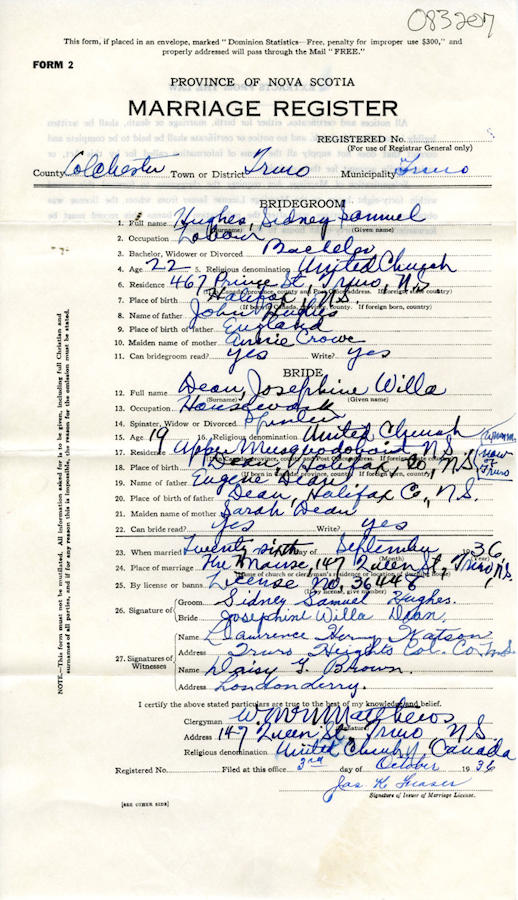 083207
This form, if placed in an envelope, marked "Dominion Statistics—Free, penalty for improper use $300," and
properly addressed will pass through the Mail "FREE."
FORM 2
PROVINCE OF NOVA SCOTIA
MARRIAGE REGISTER
REGISTERED No.
(For use of Registrar General only)
County Colchester Town or District Truro Municipality Truro
BRIDEGROOM
1. Full name Hughes, Sidney Samuel
(Surname) (Given name)
2. Occupation Labour
3. Bachelor, Widower or Divorced Bachelor
4. Age 22 5. Religious denomination United Church
6. Residence 467 Prince St, Truro, N.S.
7. Place of birth Halifax, N.S.
8. Name of father John Hughes
9. Place of father England
10. Maiden name of mother Annie Crowe
11. Can bridegroom read? yes Write? yes
BRIDE
12. Full name Dean, Josephine Willa
(Surname) (Given name)
13. Occupation Housework
14. Spinster, Widow or Divorced Spinster
15. Age 19 16. Religious denomination United Church
17. Residence Upper Musquodoboit N.S. now at Truro
18. Place of birth Dean, Halifax, Co, N.S.
19. Name of father Eugene Dean
20. Place of birth of father Dean, Halifax Co, N.S.
21. Maiden name of mother Sarah Dean
22. Can bride read? Yes Write? yes
23. When married Twenty sixth day of September 1936
(Month) (Year)
24. Place of marriage The Manse, 147 Queen St, Truro, N.S.
25. By license or banns License No. 36448
26. Signature of Groom Sidney Samuel Hughes.
Bride Josephine Willa Dean.
27. Signatures of Witnesses
Name Lawrence Watson
Address Truro Heights Col. Co. N.S.
Name Daisy G. Brown.
Address Londonderry.
I certify the above stated particulars are true to the best of my knowledge and belief.
Clergyman W. Matthews
Address 147 Queen St, Truro NS
Religious denomination United Church, Canada
Registered No. Filed at this office 3rd day of October 1936
Jas K Fraser
Signature of Issuer of Marriage License.
[SEE OTHER SIDE]
NOTE.—This form must not be mutilated. All information asked for is to be given, including full Christian and
surnames of all parties, and if for any reason this is impossible, the reason for the omission must be stated.